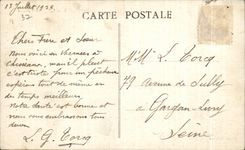 13 Juillet 1928
CARTE POSTALE
32
Cher Frère et Sœur
Nous voici en vacances à
mais il pleut
c'est triste pour un pêcheur
espérons tout de même un
temps meilleur
Notre santé est bonne et
nous vous embrassons tous
deux
L. G. Torcq
Mr Mme L. Torcq
79 Avenue de Sully
à Gargan Livry
Seine